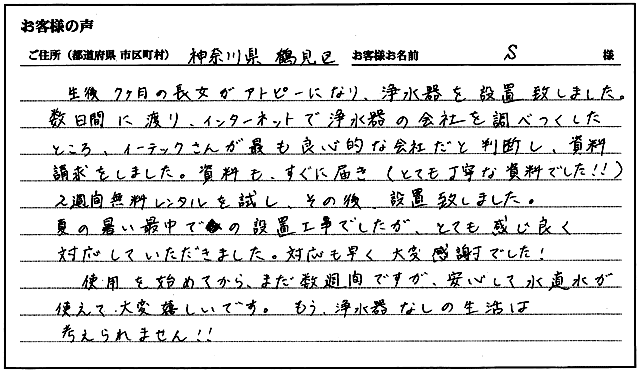 お客様の声
ご住所（都道府県 市区町村） 神奈川県 鶴見区 お客様お名前 S 様
生後 7ヶ月の長女がアトピーになり、浄水器を設置致しました。
数日間に渡り、インターネットで浄水器の会社を調べつくした
ところ、イーテックさんが最も良心的な会社だと判断し、資料
請求をしました。資料も、すぐに届き（とても丁寧な資料でした!!）
2週間無料レンタルを試し、その後、設置致しました。
夏の暑い最中での設置工事でしたが、とても感じ良く
対応していただきました。対応も早く大変感謝でした！
使用を始めてから、まだ数週間ですが、安心して水道水が
使えて、大変嬉しいです。もう、浄水器なしの生活は
考えられません!!